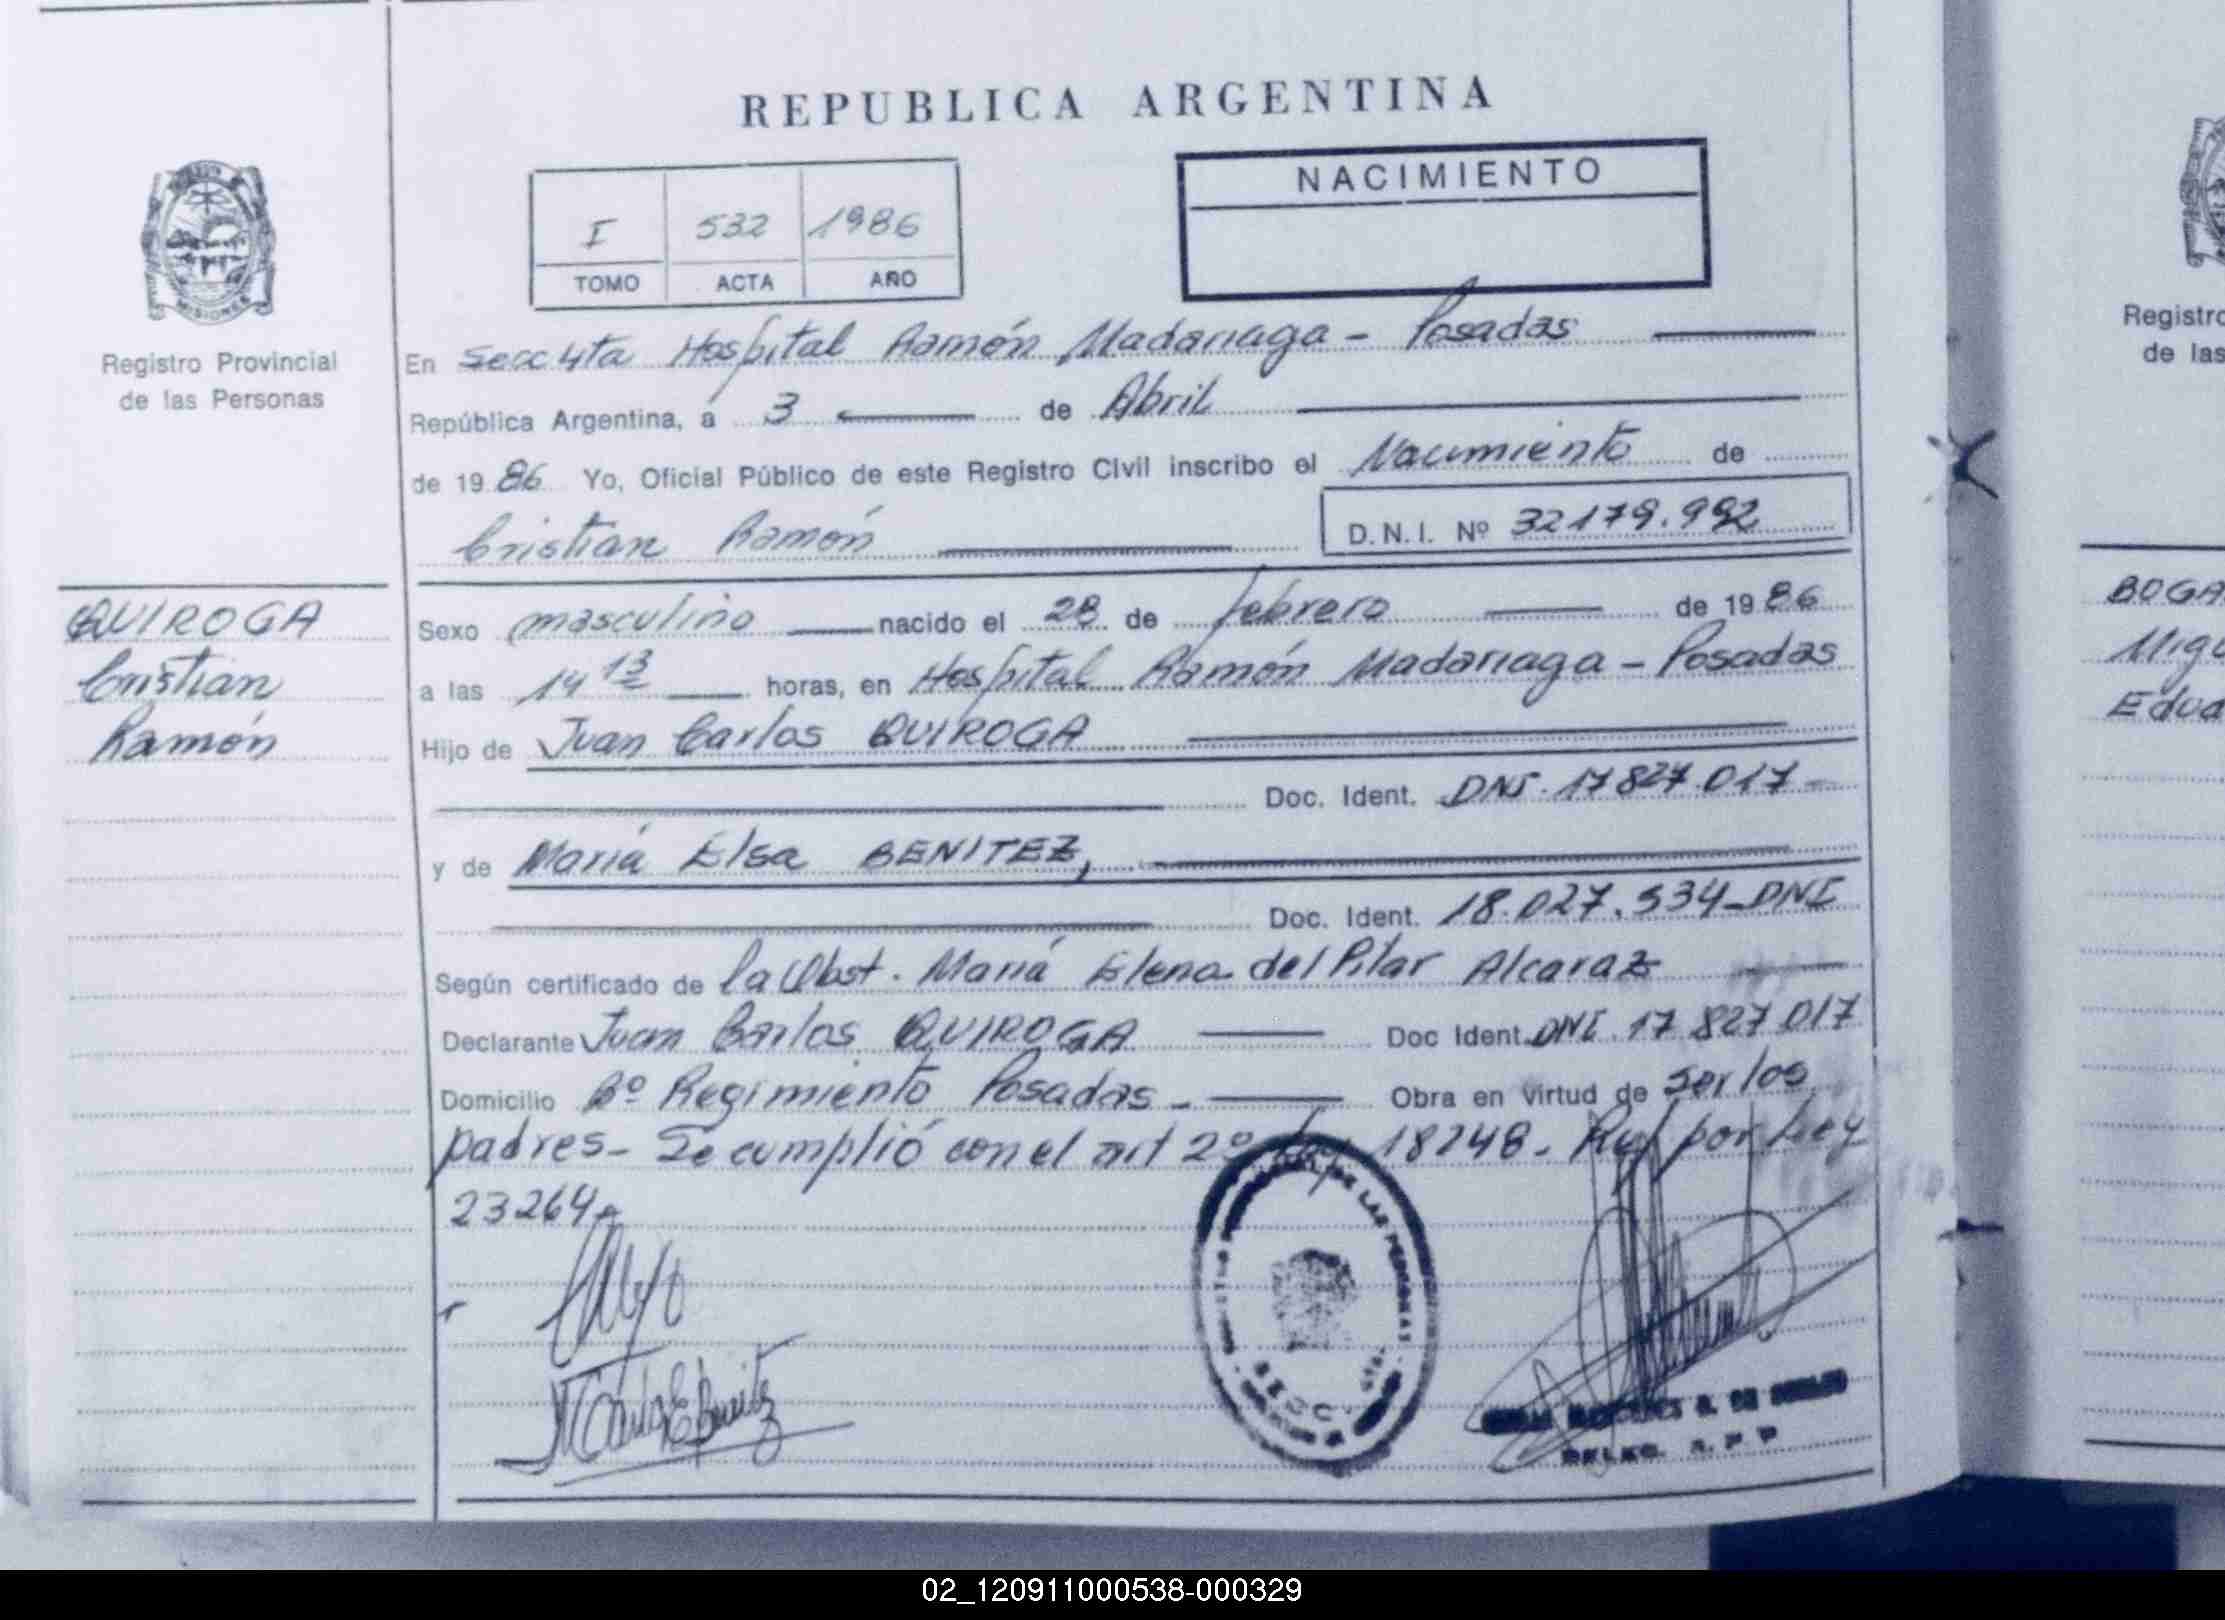 REPUBLICA ARGENTINA
NACIMIENTO
I 532 1986
TOMO ACTA AÑO
MISIONES
Registro Provincial
de las Personas
En Secc 4ta Hospital Ramón Madariaga - Posadas
República Argentina, a 3 de Abril
de 1986 Yo, Oficial Público de este Registro Civil inscribo el Nacimiento de
Cristian Ramón D.N.I. Nº 32179.992
QUIROGA
Cristian
Ramón
Sexo masculino nacido el 28 de febrero de 1986
a las 14 13 horas, en Hospital Ramón Madariaga - Posadas
Hijo de Juan Carlos QUIROGA
Doc. Ident. DNI. 17827.017-
y de María Elsa BENITEZ,
Doc. Ident. 18.027.534-DNI
Según certificado de la Obst. María Elena del Pilar Alcaraz
Declarante Juan Carlos QUIROGA Doc Ident. DNI. 17 827 017
Domicilio Bº Regimiento Posadas - Obra en virtud de ser los
padres - Se cumplió con el art 2º Ley 18248. Ref por Ley
23264
DE LAS PERSONAS
Registro
de las
BOGA
Migu
Edua
02_120911000538-000329